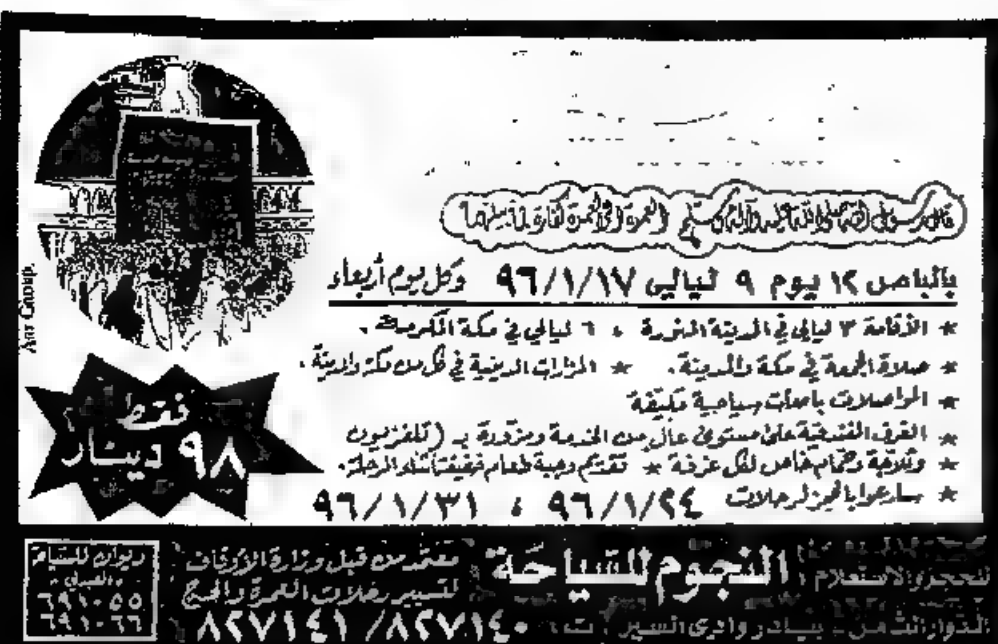 قال رسول الله صلى الله عليه وآله وسلم العمرة الى العمرة كفارة لما بينهما
بالباص ١٢ يوم ٩ ليالي ٩٦/١/١٧ وكل يوم أربعاء
* الأقامة ٣ ليالي في المدينة المنورة ، ٦ ليالي في مكة المكرمة .
* صلاة الجمعة في مكة والمدينة . * المزارات الدينية في كل من مكة والمدينة .
* المواصلات باصات سياحية مكيفة
* الغرف الفندقية على مستوى عال من الخدمة ومزودة بـ (تلفزيون
* وثلاجة وحمام خاص لكل غرفة * تقديم وجبة طعام خفيفة أثناء الرحلة .
* سارعوا بالحجز لرحلات ٩٦/١/٢٤ ، ٩٦/١/٣١
Art Group.
فقط
٩٨ دينار
للحجز والاستعلام : النجوم للسياحة
معتمد من قبل وزارة الأوقاف
لتسيير رحلات العمرة والحج
وادي السير ت : ٨٢٧١٤٠ / ٨٢٧١٤١
ديوان للسياحة
العبدلي
٦٩١٠٥٥
٦٩١٠٦٦